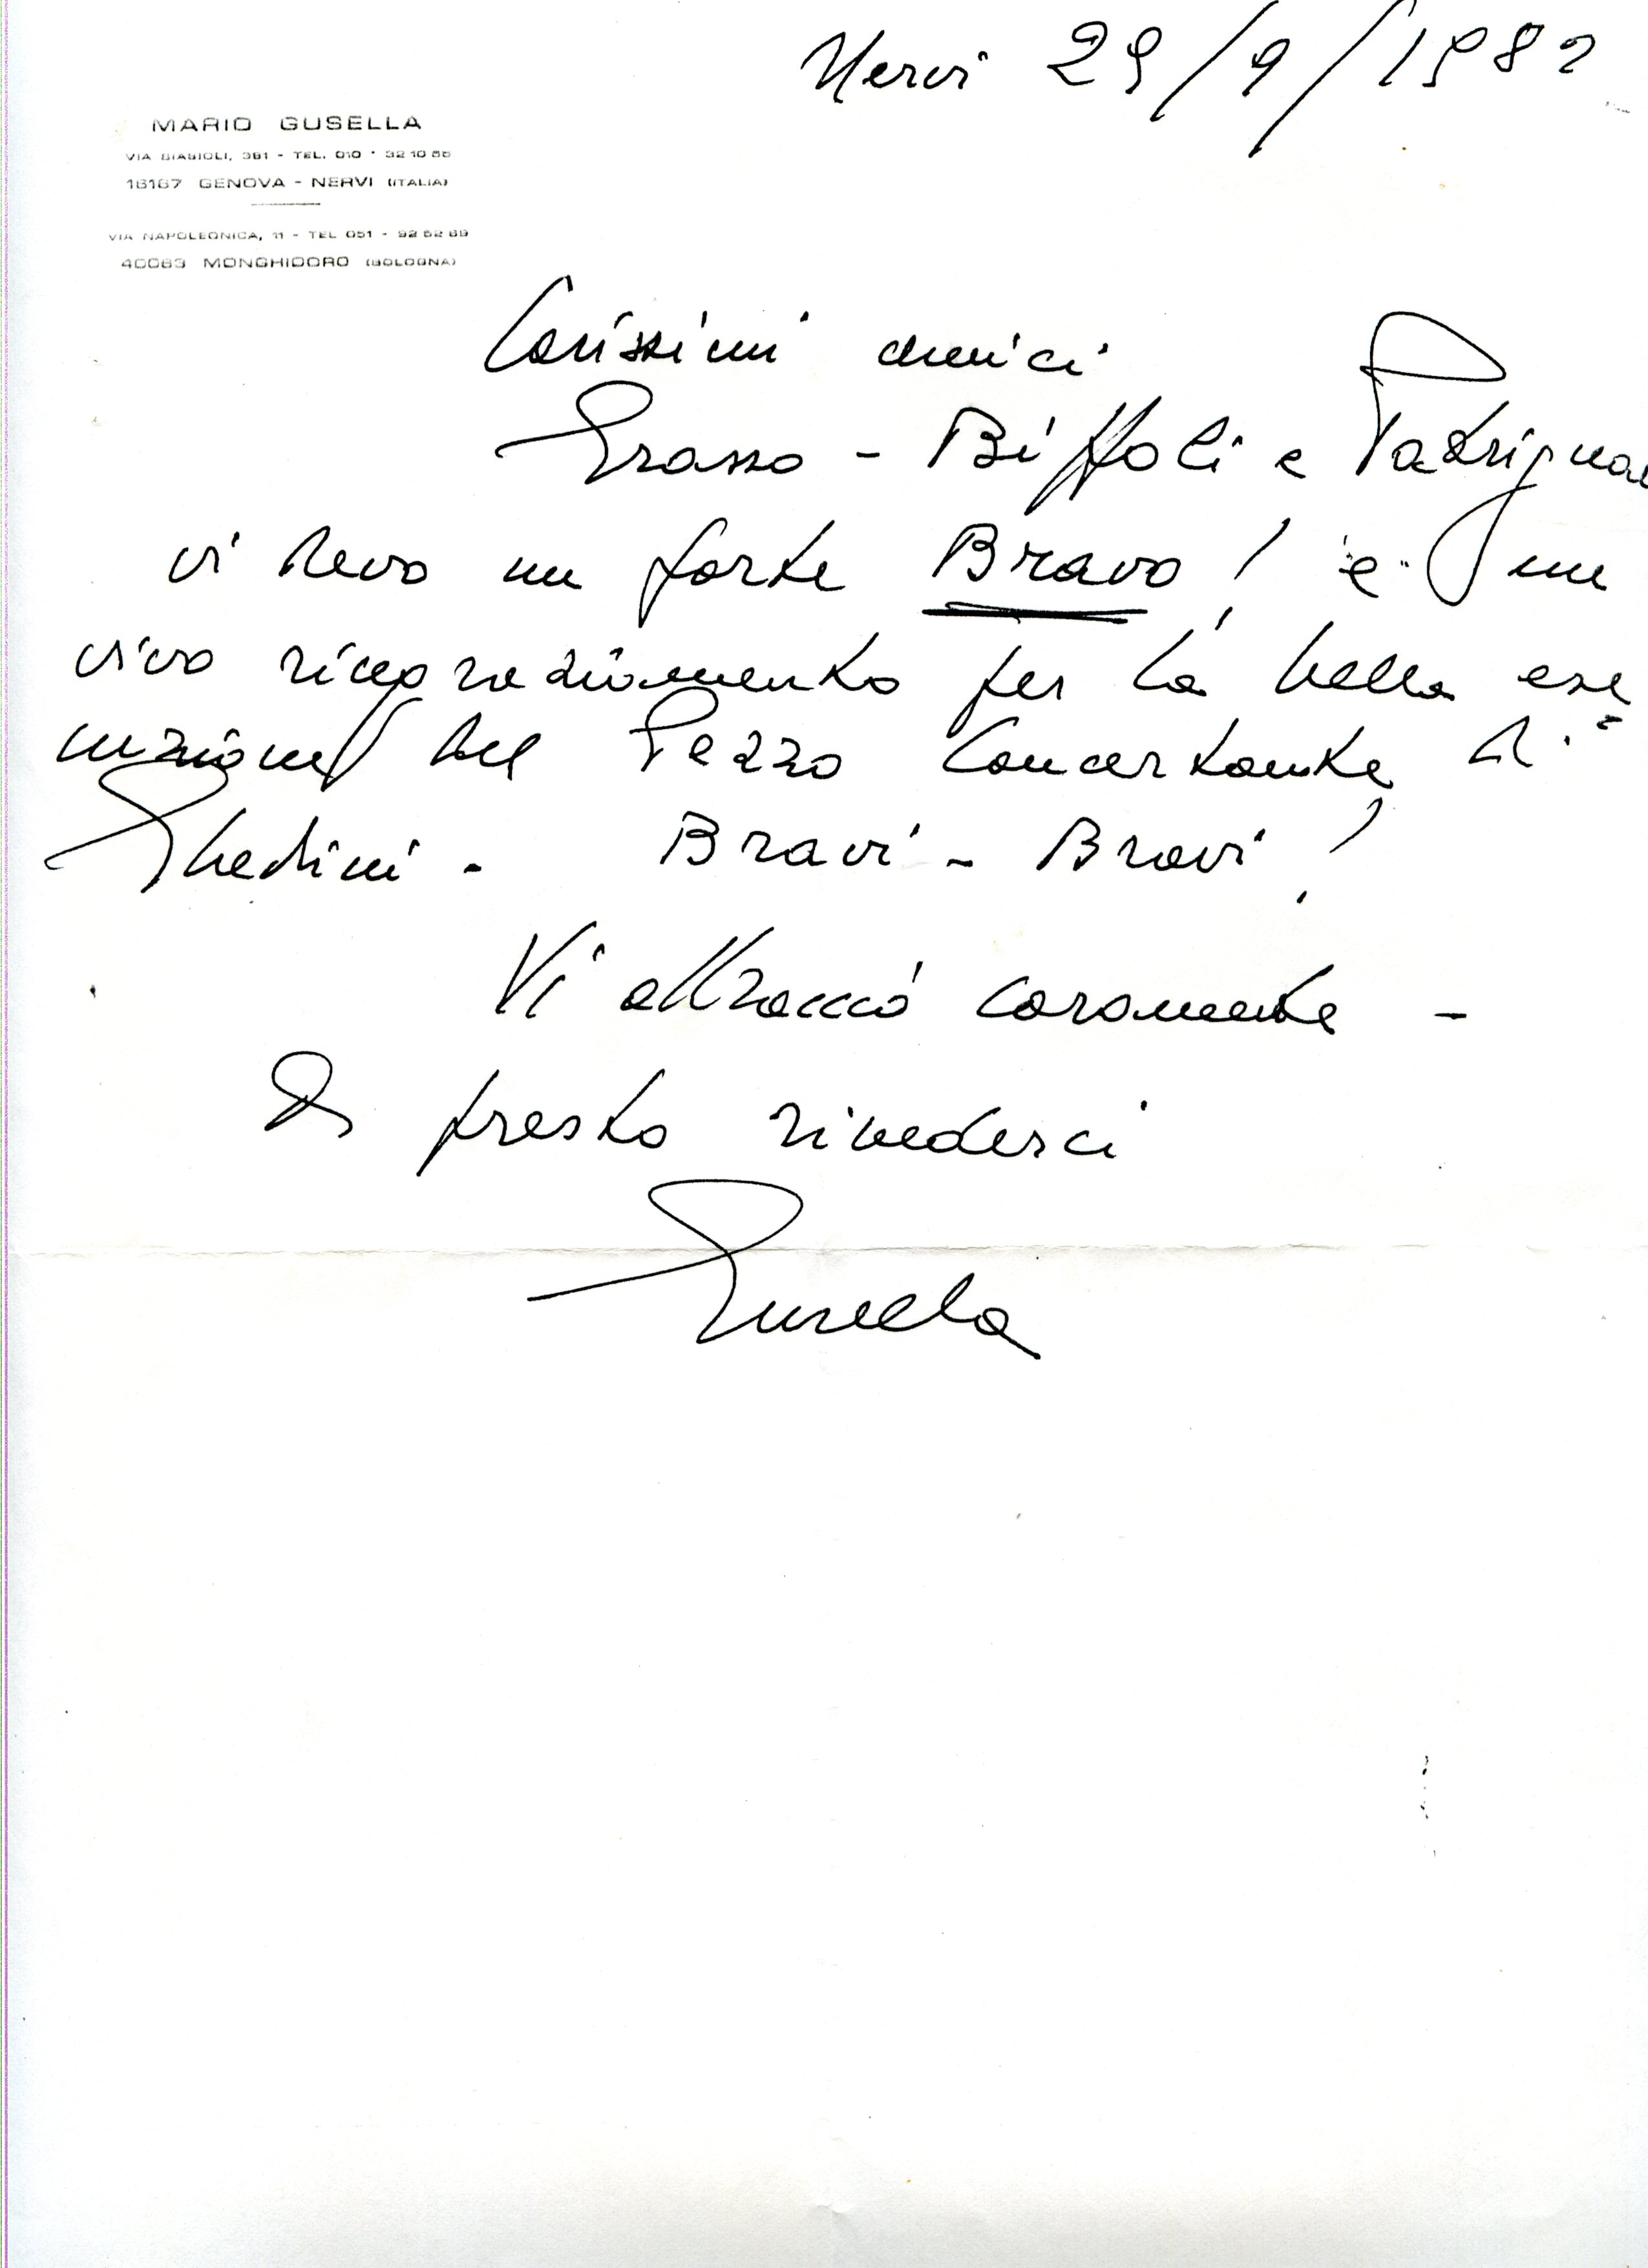 Nervi 29/9/1982
MARIO GUSELLA
VIA BIASIOLI, 361 - TEL. 010 - 32 10 56
16167 GENOVA - NERVI (ITALIA)
VIA NAPOLEONICA, 11 - TEL 051 - 92 52 69
40063 MONGHIDORO (BOLOGNA)
Carissimi amici
Grasso - Biffoli e Patrignan
vi devo un forte Bravo! e un
vivo ringraziamento per la bella ese
cuzione del Pezzo Concertante di
Ghedini - Bravi - Bravi!
Vi abbraccio caramente -
A presto rivederci
Gusella